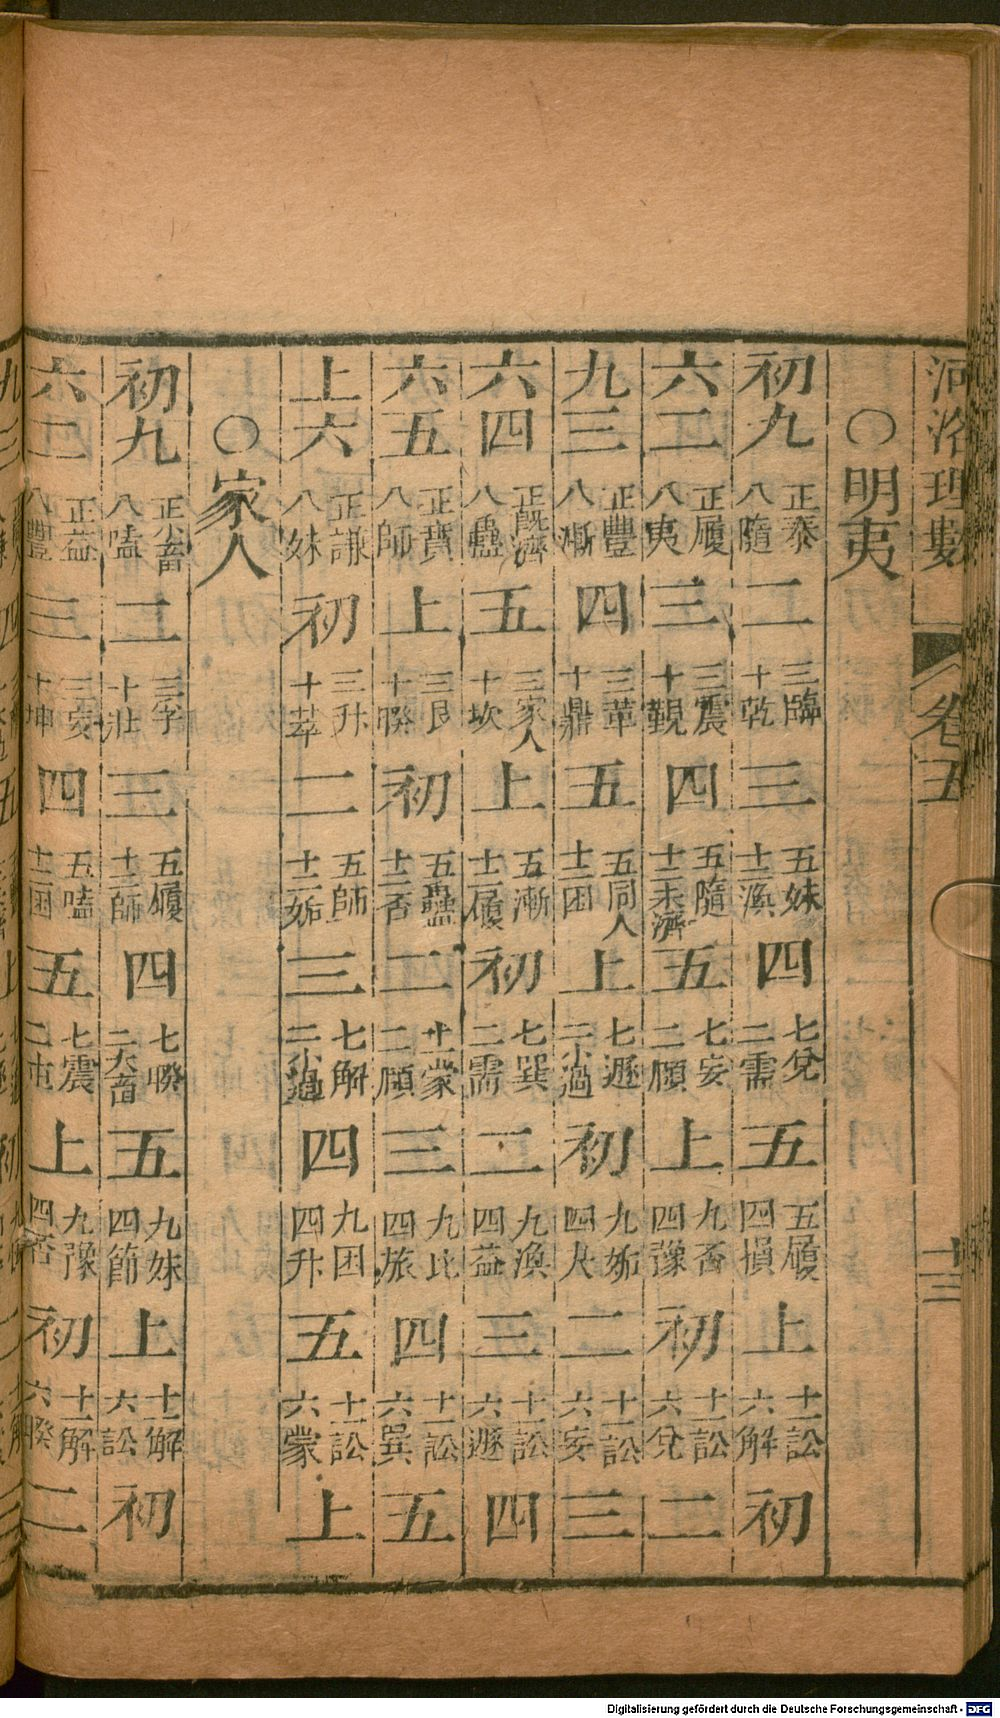 河洛理數 卷五 十三
〇明夷
初九 正泰 八隨 二 三臨 十乾 三 五妹 十二渙 四 七兌 二需 五 五履 四損 上 十一訟 六解 初
六二 正履 八夷 三 三震 十觀 四 五隨 十二未濟 五 七妄 二頤 上 九否 四豫 初 十一訟 六兌 二
九三 正豐 八漸 四 三革 十鼎 五 五同人 十二困 上 七遯 二小過 初 九姤 四夬 二 十一訟 六妄 三
六四 正旣濟 八蠱 五 三家人 十坎 上 五漸 十二履 初 七巽 二需 二 九渙 四益 三 十一訟 六遯 四
六五 正賁 八師 上 三艮 十睽 初 五蠱 十二否 二 蒙 二頤 三 九比 四旅 四 十一訟 六巽 五
上六 正謙 八妹 初 三升 十萃 二 五師 十二姤 三 七解 二小過 四 九困 四升 五 十一訟 六蒙 上
〇家人
初九 正小畜 八嗑 二 三孚 十壯 三 五履 十二師 四 七睽 二大畜 五 九妹 四節 上 十一解 六訟 初
六二 正益 八豐 三 三妄 十坤 四 五嗑 十二困 五 七震 二屯 上 九豫 四否 初 十一解 六睽 二
Digitalisierung gefördert durch die Deutsche Forschungsgemeinschaft - DFG